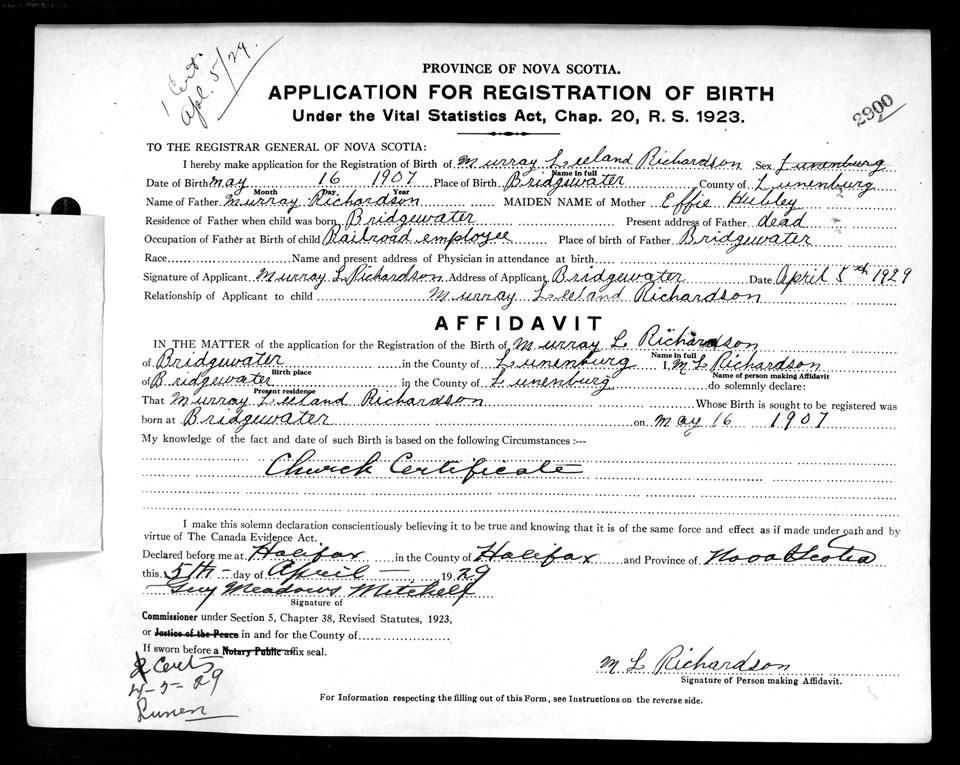 1 Cert.
Apl. 5/29.
PROVINCE OF NOVA SCOTIA.
APPLICATION FOR REGISTRATION OF BIRTH
Under the Vital Statistics Act, Chap. 20, R. S. 1923.
2900
TO THE REGISTRAR GENERAL OF NOVA SCOTIA:
I hereby make application for the Registration of Birth of Murray Leeland Richardson Sex Lunenburg
Name in full
Date of Birth May 16 1907 Place of Birth Bridgewater County of Lunenburg
Month Day Year
Name of Father Murray Richardson MAIDEN NAME of Mother Effie Hubley
Residence of Father when child was born Bridgewater Present address of Father dead
Occupation of Father at Birth of child Railroad employee Place of birth of Father Bridgewater
Race Name and present address of Physician in attendance at birth
Signature of Applicant Murray L Richardson Address of Applicant Bridgewater Date April 5th 1929
Relationship of Applicant to child Murray Leeland Richardson
AFFIDAVIT
IN THE MATTER of the application for the Registration of the Birth of Murray L Richardson
Name in full
of Bridgewater in the County of Lunenburg I, M L Richardson
Birth place Name of person making Affidavit
of Bridgewater in the County of Lunenburg do solemnly declare:
Present residence
That Murray Leeland Richardson Whose Birth is sought to be registered was
born at Bridgewater on May 16 1907
My knowledge of the fact and date of such Birth is based on the following Circumstances :---
Church Certificate
I make this solemn declaration conscientiously believing it to be true and knowing that it is of the same force and effect as if made under oath and by
virtue of The Canada Evidence Act.
Declared before me at Halifax in the County of Halifax and Province of Nova Scotia
this 5th day of April 1929
Guy Meadows Mitchell
Signature of
Commissioner under Section 5, Chapter 38, Revised Statutes, 1923,
or Justice of the Peace in and for the County of
If sworn before a Notary Public affix seal.
M L Richardson
Signature of Person making Affidavit.
Certs
4-5-29
Lunen
For Information respecting the filling out of this Form, see Instructions on the reverse side.